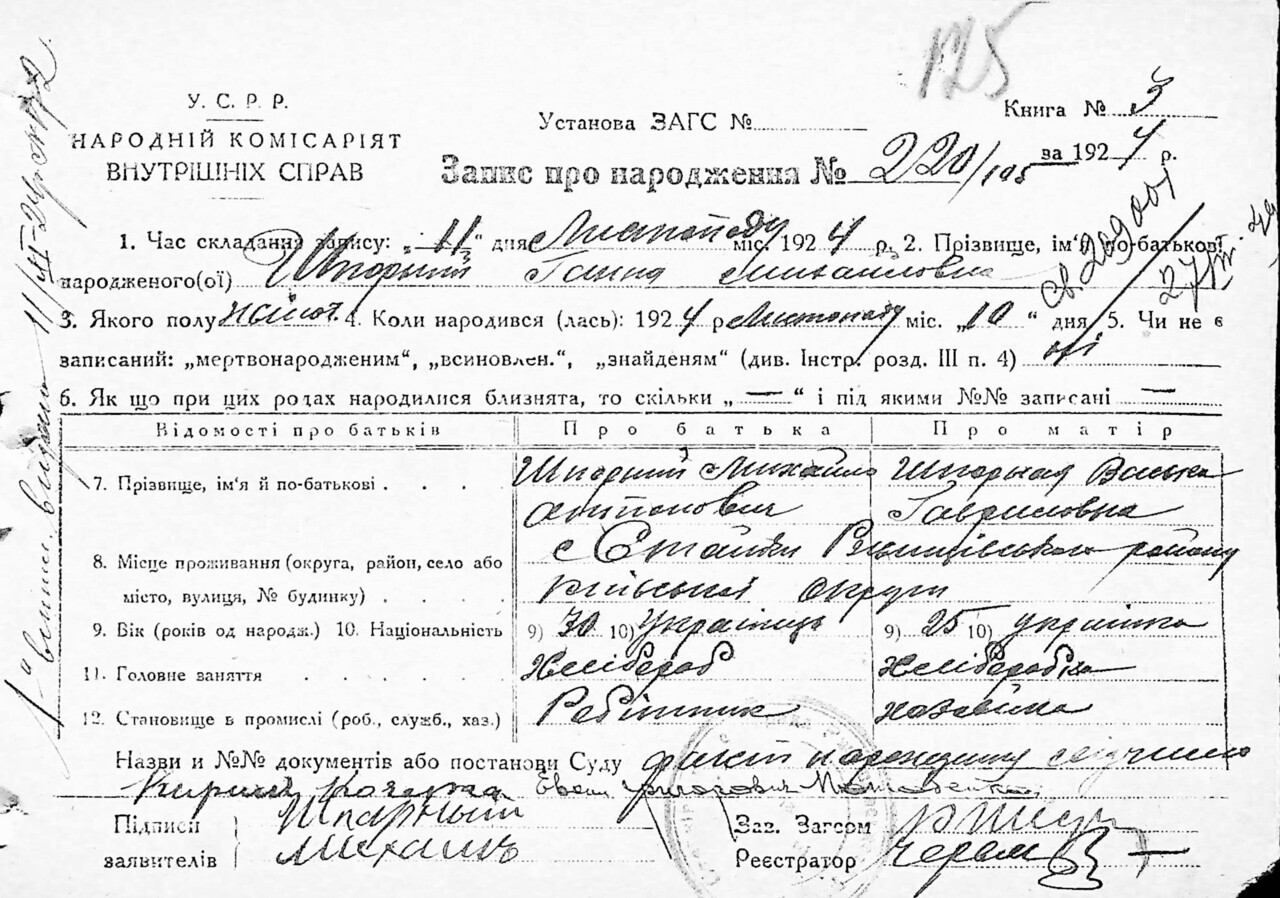 125
У. С. Р. Р.
НАРОДНІЙ КОМІСАРІЯТ
ВНУТРІШНІХ СПРАВ
Установа ЗАГС №
Книга № 3
Запис про народження № 220/105 за 1924 р.
1. Час складання запису: „ 11 “ дня Листопаду міс. 1924 р. 2. Прізвище, ім'я й по-батькові
народженого(ої) Шпорний Ганна Михайловна
3. Якого полу жіноч. 4. Коли народився (лась): 1924 р Листопаду міс. „10 “ дня 5. Чи не є
записаний: „мертвонародженим“, „всиновлен.“, „знайденям“ (див. Інстр. розд. III п. 4) ні
6. Як що при цих родах народилися близнята, то скільки „ — “ і під якими №№ записані —
Відомості про батьків Про батька Про матір
7. Прізвище, ім'я й по-батькові . . . . Шпорний Михайло Шпорная
Антонович Гавриловна
8. Місце проживання (округа, район, село або с Стайки району
місто, вулиця, № будинку) . . . . Київської округи
9. Вік (років од народж.) 10. Національність 9) 30 10) Українець 9) 25 10) українка
11. Головне заняття . . . . . . Хлібороб Хліборобка
12. Становище в промислі (роб., служб., хаз.) Робітник хозяйка
Назви и №№ документів або постанови Суду факт
Підписи
заявителів
Шпарный
Михаилъ
Зав. Загсом
Реєстратор
св. 209001